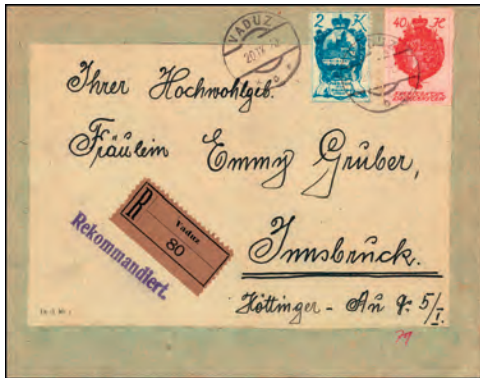 VADUZ
2 K
40 K
Ihrer Hochwohlgeb.
Fräulein Emmy Gruber,
R
Vaduz
80
Rekommandiert.
Innsbruck.
Höttinger - Au 5/I.
79